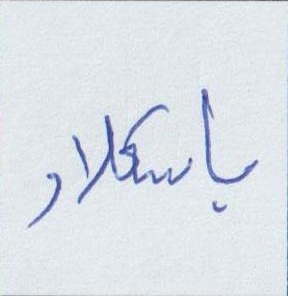 باسکلار